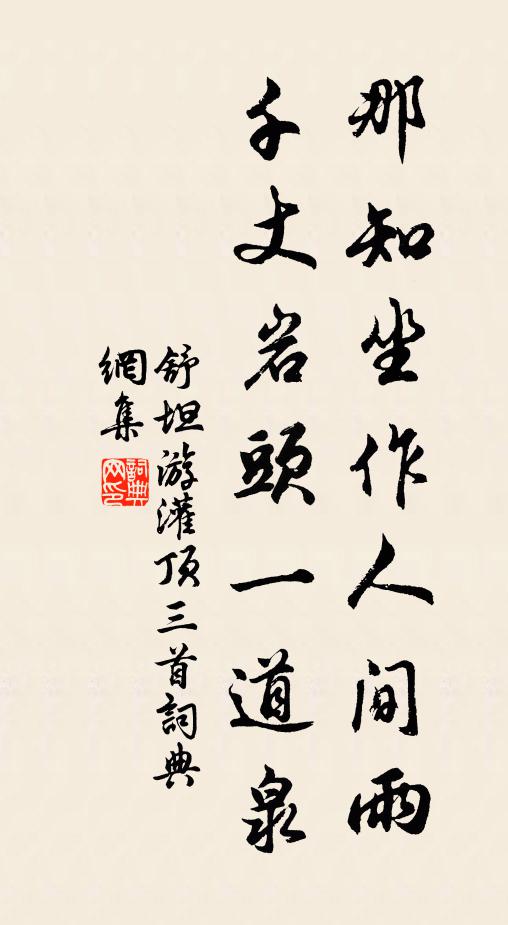 那知坐作人间雨
千丈岩頭一道泉
舒坦游灌顶三首詞典
網集
詞典网印